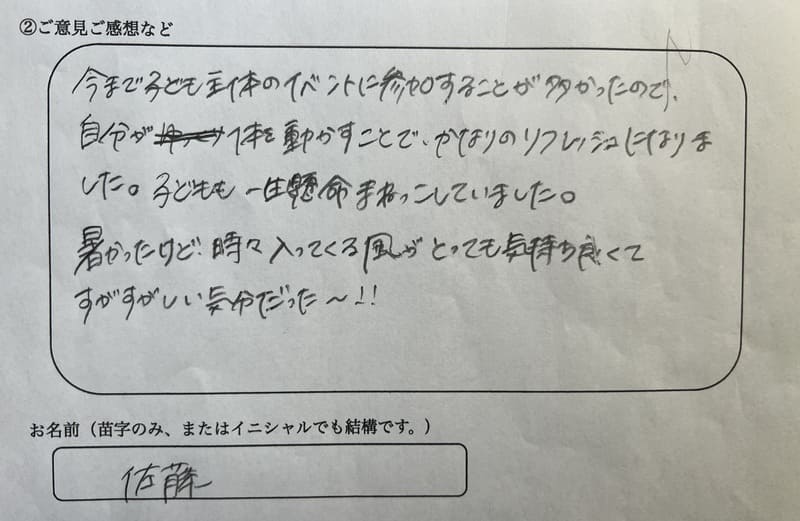 ②ご意見ご感想など
今まで子ども主体のイベントに参加することが多かったので、
自分が体を動かすことで、かなりのリフレッシュになりま
した。子どもも一生懸命まねっこしていました。
暑かったけど、時々入ってくる風がとっても気持ち良くて
すがすがしい気分だった～!!
お名前（苗字のみ、またはイニシャルでも結構です。）
佐藤